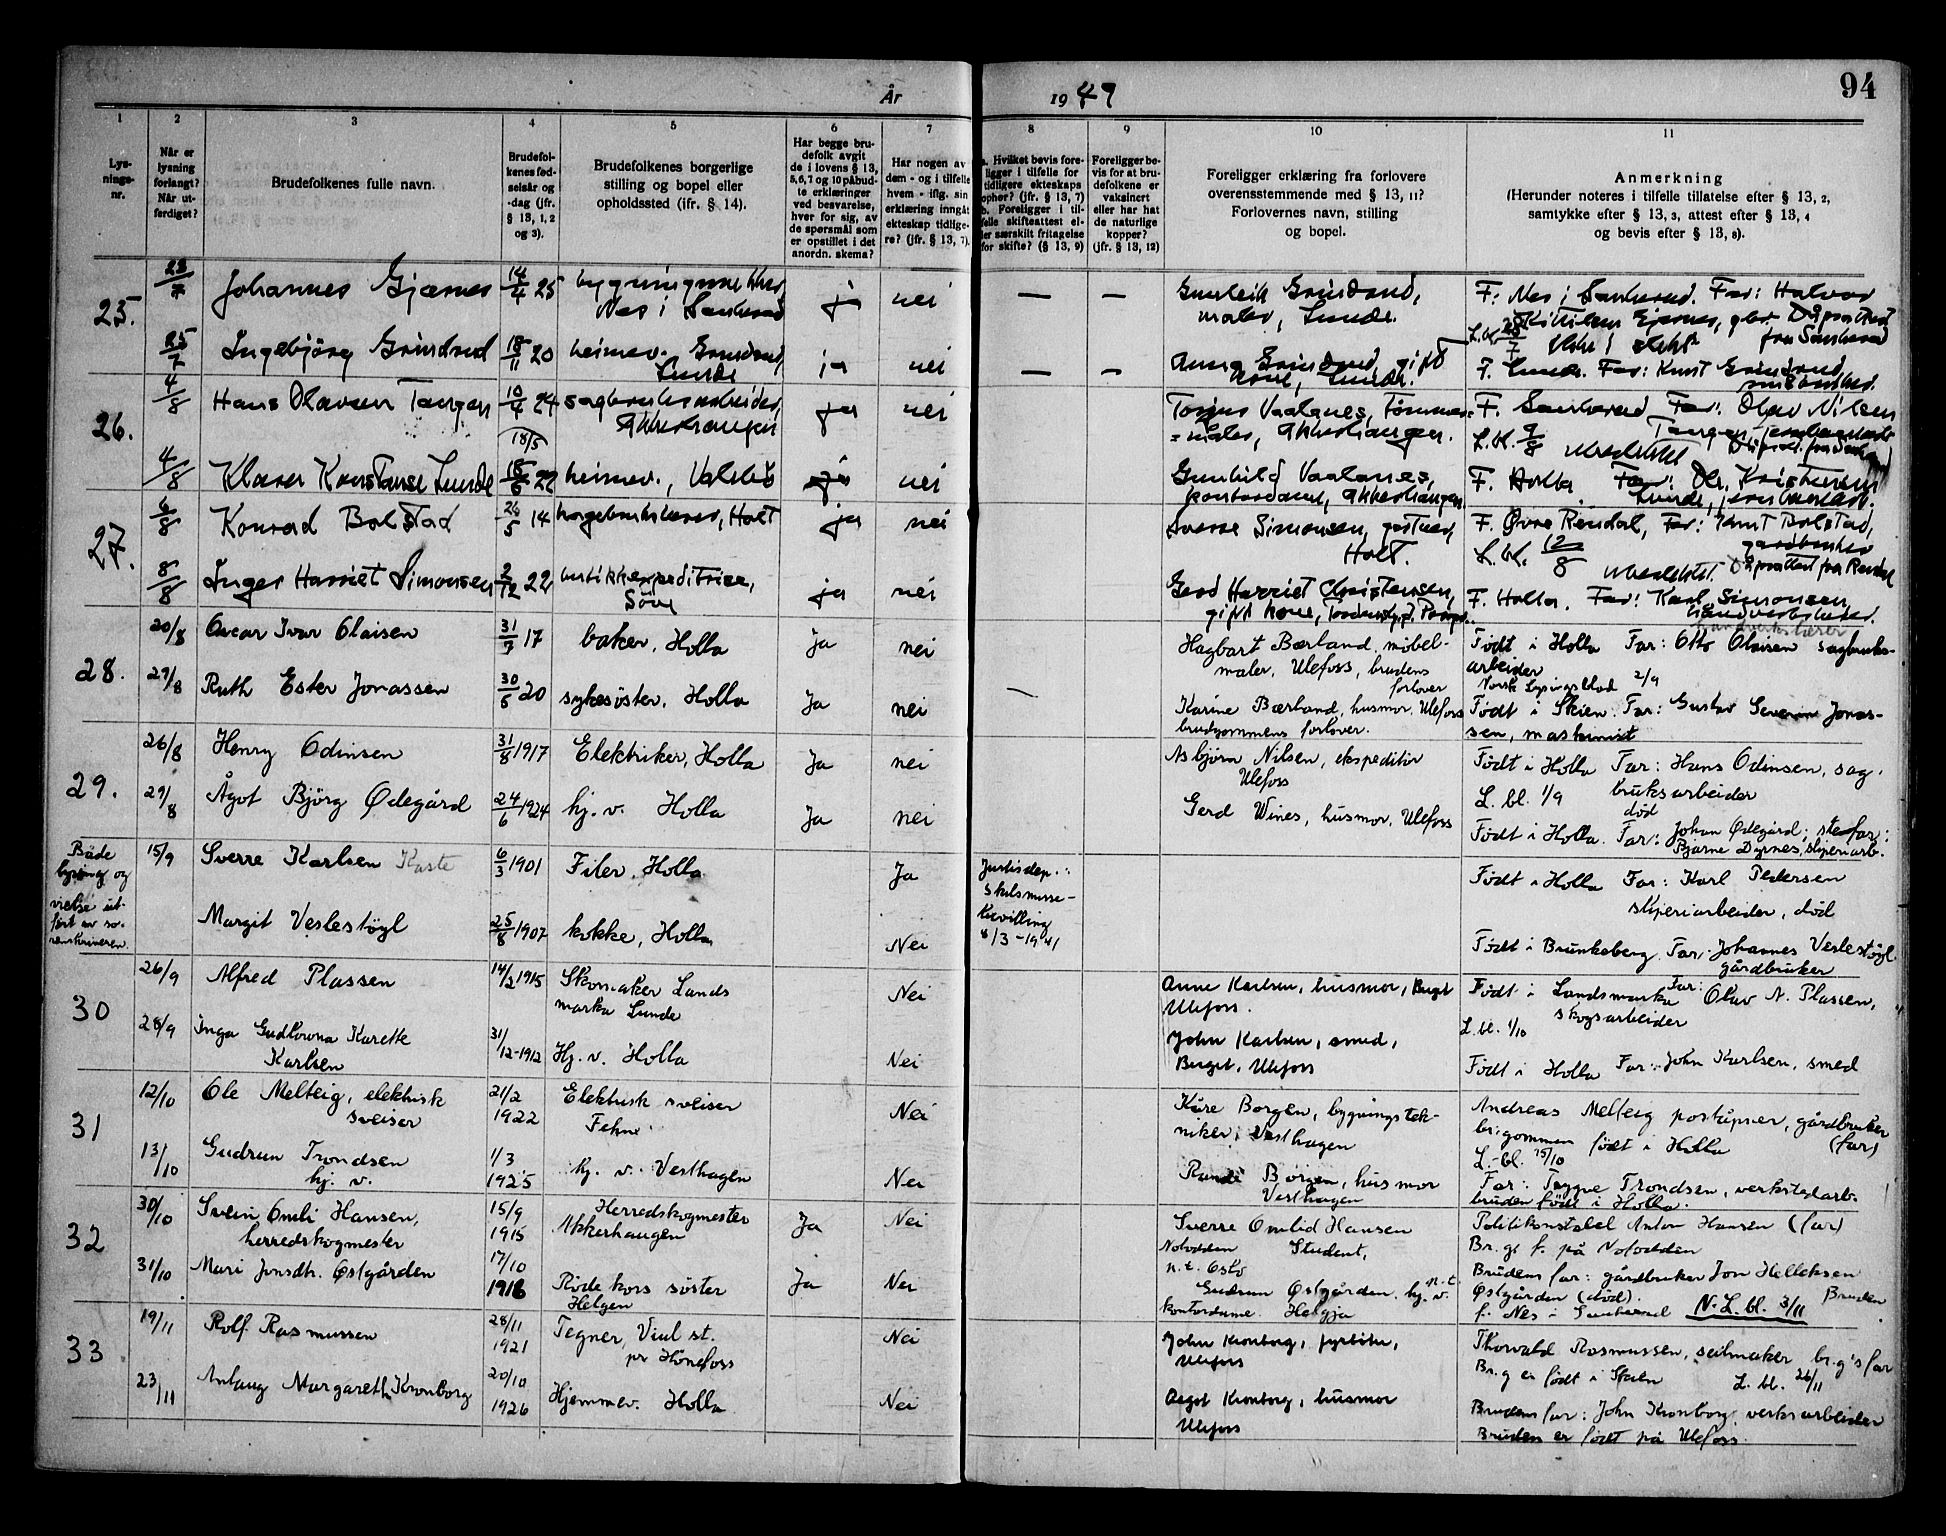 94
År 19 49
1 2 3 4 5 6 7 8 9 10 11
Lys-
nings-
nr.
Når er
lysning
forlangt?
Når ut-
ferdiget?
Brudefolkenes fulle navn.
Brudefol-
kenes fød-
selsår og
-dag (jfr.
§ 13, 1, 2
og 3).
Brudefolkenes borgerlige
stilling og bopel eller
opholdssted (ifr. § 14).
Har begge bru-
defolk avgit
de i lovens § 13,
5, 6, 7 og 10 påbud-
te erklæringer
ved besvarelse,
hver for sig, av
de spørsmål som
er opstillet i det
anordn. skema?
Har nogen av
dem - og i tilfelle
hvem - iflg. sin
erklæring inngått
ekteskap tidlige-
re? (jfr. § 13, 7).
a. Hvilket bevis fore-
ligger i tilfelle for
tidligere ekteskaps
opher? (jfr. § 13, 7)
b. Foreligger i til-
felle skifteattest el-
ler særskilt fritagelse
for skifte? (§ 13, 9)
Foreligger be-
vis for at bru-
defolkene er
vaksinert
eller har hat
de naturlige
kopper?
(jfr. § 13, 12)
Foreligger erklæring fra forlovere
overensstemmende med § 13, 11?
Forlovernes navn, stilling
og bopel.
Anmerkning
(Herunder noteres i tilfelle tillatelse efter § 13, 2,
samtykke efter § 13, 3, attest efter § 13, 4
og bevis efter § 13, 8).
25. 23/7 Johannes Gjernes 14/4 25
Nes i Sauherad ja nei — —
Gunleik Grindrud,
maler, Lunde.
F: Nes i Sauherad. Far: Halvor
Kittilsen Gjernes, gbr. Dåpsattest
fra Sauherad
L.bl. 28/7
25/7 Ingebjørg Grindrud 18/11 20 heimev. Grindrud,
Lunde ja nei — —
Anna Grindrud, gift
kone, Lunde.
F. Lunde. Far: Knut Grindrud,
26. 4/8 Hans Olavsen Tangen 10/4 24 sagbruksarbeider,
Akkerhaugen ja nei
Vaalanes,
Akkerhaugen.
F. Sauherad Far: Olav Nilsen
Tangen,
L.bl. 9/8
(18/5)
4/8 Klara Konstanse Lunde 18/5 22 heimev., Valebø ja nei
Gunhild Vaalanes,
kontordame, Akkerhaugen
F. Holla. Far: Ole Kristensen
Lunde,
27. 6/8 Konrad Bolstad 26/5 14 Holt ja nei
Sverre Simonsen,
Holt.
F. Øvre Rendal, Far: Knut Bolstad,
gardbruker
L.bl. 12/8 Dåpsattest fra Rendal
8/8 Inger Harriet Simonsen 2/12 22 butikkexpeditrise,
Søve ja nei
Gerd Harriet Christensen,
gift kone,
F. Holla. Far: Karl Simonsen,
28. 20/8 Oscar Ivar Olaisen 31/7 17 baker, Holla Ja nei
Hagbart Bærland, møbel-
maler, Ulefoss, brudens
forlover
Født i Holla Far: Otto Olaisen sagbruks-
arbeider
Norsk Lysingsblad 2/9
27/8 Ruth Ester Jonassen 30/5 20 sykesøster, Holla Ja nei —
Karine Bærland, husmor, Ulefoss
brudgommens forlover.
Født i Skien. Far: Gustav Severin Jonas-
sen, maskinist
29. 26/8 Henry Odinsen 31/8 1917 Elektriker, Holla Ja nei
Asbjørn Nilsen, ekspeditør
Ulefoss
Født i Holla Far: Hans Odinsen, sag-
bruksarbeider
L. bl. 1/9
29/8 Ågot Bjørg Ødegård 24/6 1924 hj. v. Holla Ja nei
Gerd Wines, husmor, Ulefoss
død
Født i Holla. Far: Johan Ødegård; stefar:
Bjarne Dyrnes,
Både
lysning og
vielse ut-
ført av so-
renskriveren.
15/9 Sverre Karlsen Kaste 6/3 1901 Filer, Holla Ja
Justisdep.:
Skilsmisse-
bevilling
8/3-1941
Født i Holla Far: Karl Pedersen
støperiarbeider, død
Margit Veslestøyl 25/8 1907 kokke, Holla Nei
Født i Brunkeberg. Far: Johannes Veslestøyl
gårdbruker
30 26/9 Alfred Plassen 14/2 1915 Skomaker Lands
marka Lunde Nei
Anne Karlsen, husmor, Berget
Ulefoss.
Født i Landsmarka Far: Olav N. Plassen,
skogsarbeider
L. bl. 1/10
28/9 Inga Gudlovna Karette
Karlsen 31/12-1912 Hj. v. Holla Nei
John Karlsen, smed,
Berget, Ulefoss
Født i Holla Far: John Karlsen, smed
31 12/10 Ole Melteig, elektrisk
sveiser 21/2
1922 Elektrisk sveiser
Fehn Nei
Kåre Borgen, bygningstek-
niker, Vesthagen
Andreas Melteig poståpner, gårdbruker
br.gommen født i Holla (far)
L.-bl. 15/10
13/10 Gudrun Trondsen
hj. v. 1/3
1925 hj. v. Vesthagen Nei
Randi Borgen, husmor
Vesthagen
Far: Trygve Trondsen, verkstedarb.
bruden født i Holla.
32 30/10 Svein Omli Hansen,
herredskogmester 15/9
1915 Herredskogmester
Akkerhaugen Ja Nei
Sverre Omlid Hansen
Notodden Student,
n.t. Oslo
Politikonstabel Anton Hansen (far)
Br.g. f. på Notodden
31/10 Mari Jonsdtr. Østgården 17/10
1916 Røde kors søster
Helgen Ja Nei
Gudrun Østgården, hj. v. n.t.
kontordame. Helgja
Brudens far: gårdbruker Jon Helleksen
Østgården (død). Bruden
f. Nes i Sauherad N. L. bl. 3/11
33 19/11 Rolf Rasmussen 28/11
1921 Tegner, Viul st.
pr Hönefoss Nei
John Kronborg, fyrbøter,
Ulefoss
Thorvald Rasmussen, seilmaker br.g's far
Br.g er født i Skien L. bl. 26/11
23/11 Anlaug Margareth Kronborg 20/10
1926 Hjemmev. Holla Nei
Aagot Kronborg, husmor
Ulefoss
Brudens far: John Kronborg, verksarbeider
Bruden er født på Ulefoss.